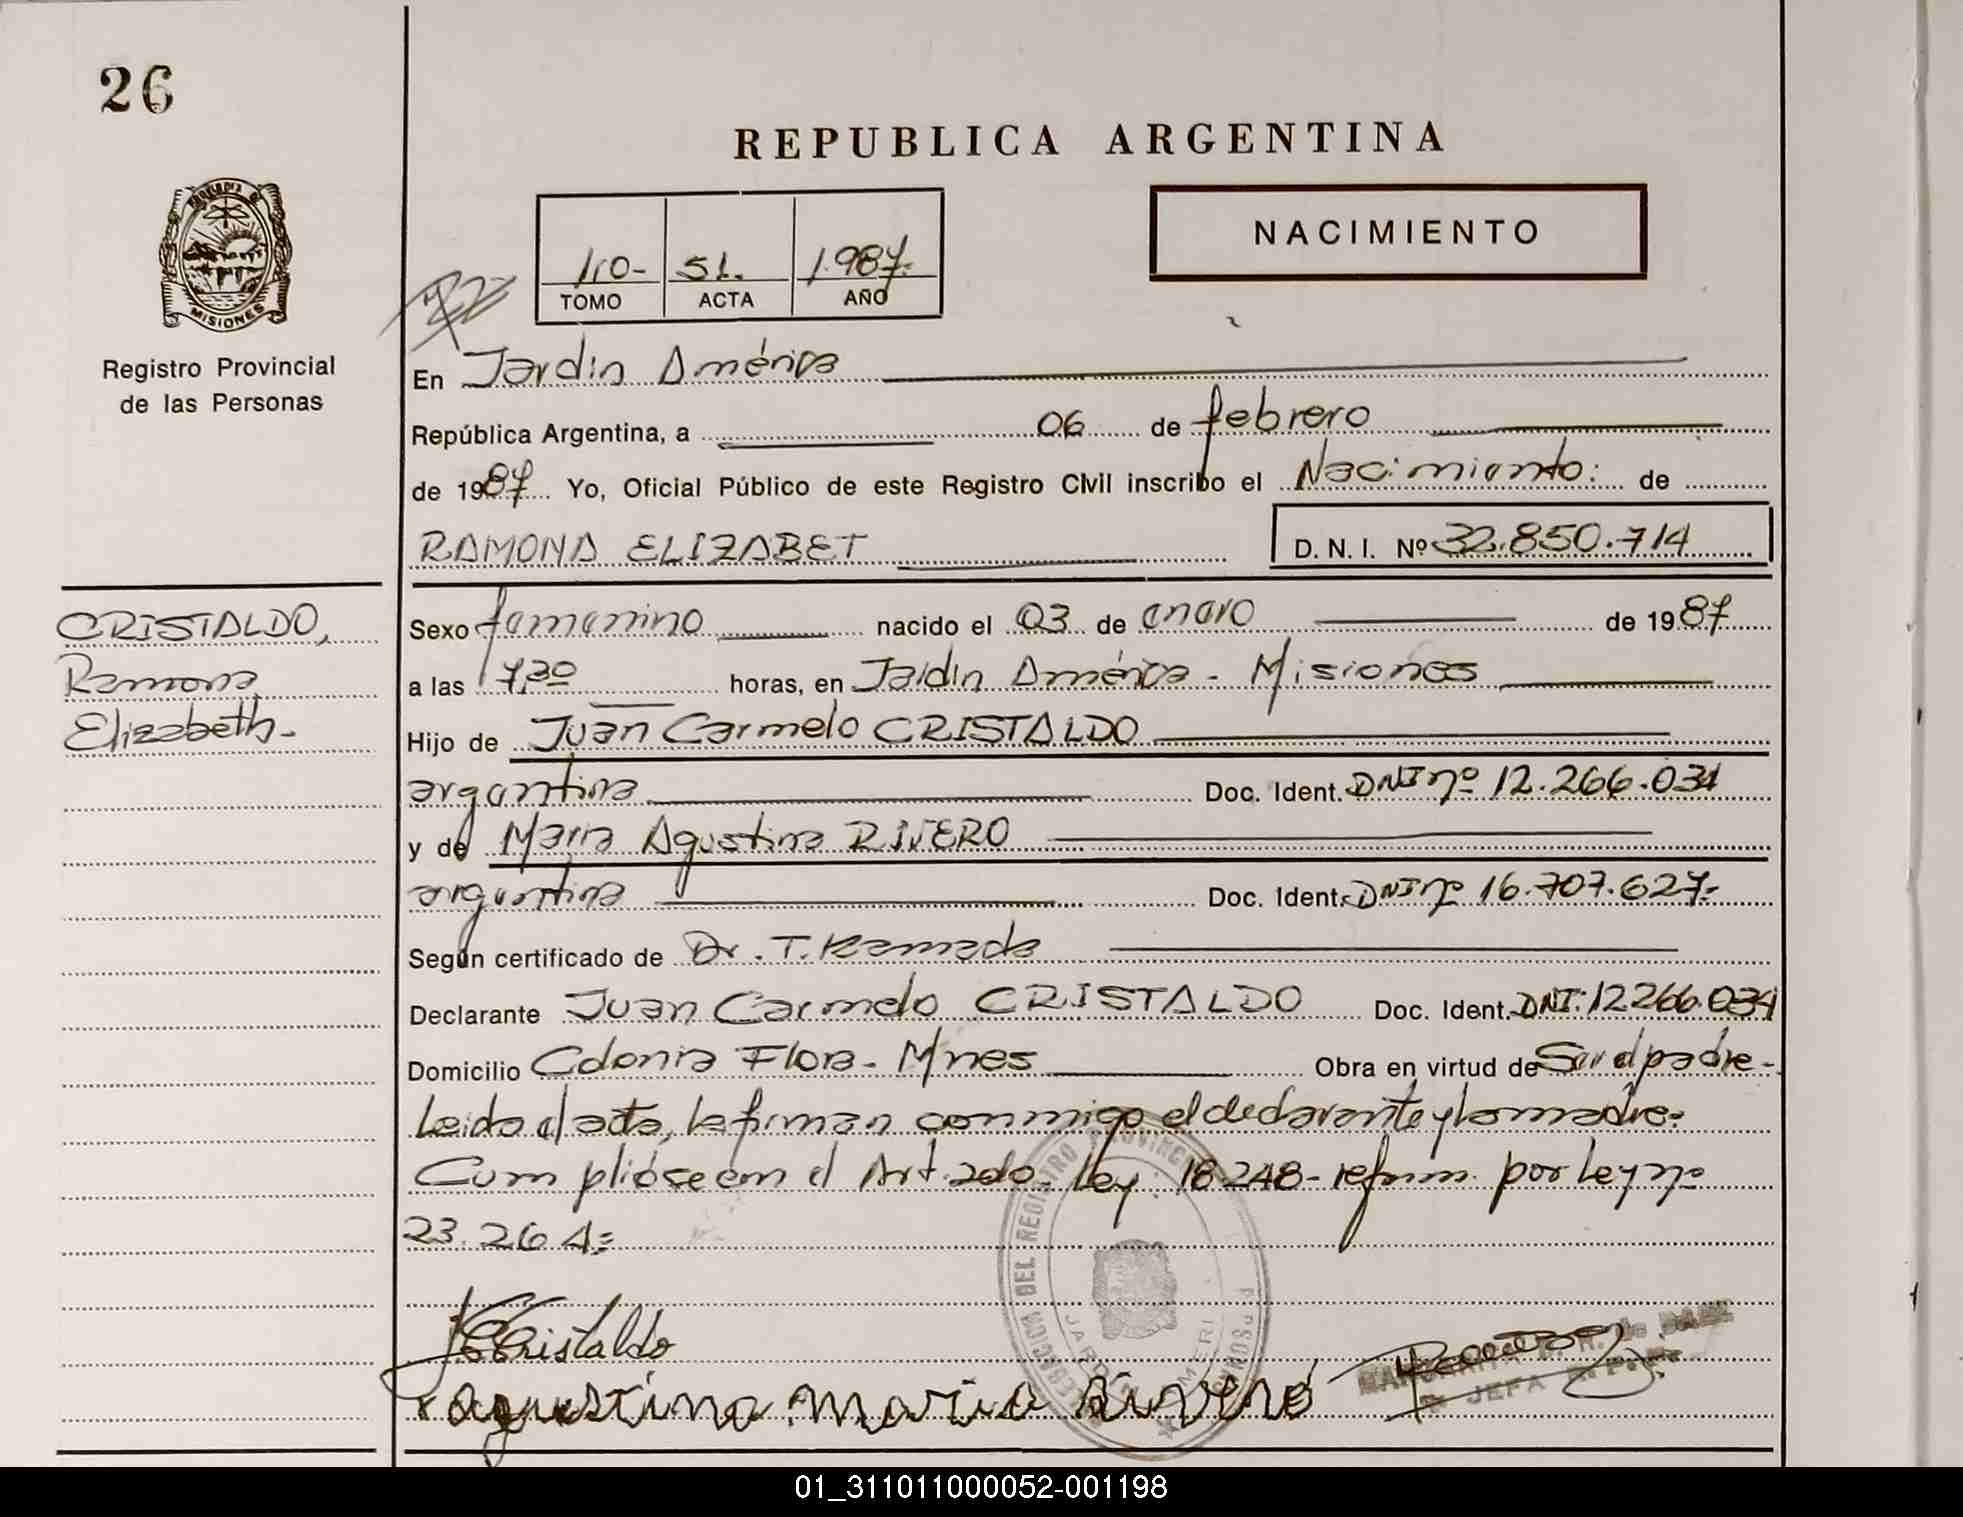 26
REPUBLICA ARGENTINA
NACIMIENTO
1ro- 51. 1.987.
TOMO ACTA AÑO
MISIONES
Registro Provincial
de las Personas
En Jardín América
República Argentina, a 06 de febrero
de 1987 Yo, Oficial Público de este Registro Civil inscribo el Nacimiento: de
RAMONA ELIZABET D. N. I. Nº 32.850.714
CRISTALDO,
Ramona
Elizabeth.-
Sexo femenino nacido el 03 de enero de 1987
a las 17,30 horas, en Jardín América - Misiones
Hijo de Juan Carmelo CRISTALDO
argentina Doc. Ident. DNI nº 12.266.034
y de María Agustina RIVERO
argentina Doc. Ident. DNI nº 16.707.627.-
Según certificado de Dr. T. Kamada
Declarante Juan Carmelo CRISTALDO Doc. Ident. DNI: 12.266.034
Domicilio Colonia Flora - Mnes Obra en virtud de Ser el padre.-
Leida el acta, la firman conmigo el declarante y la madre.-
Cumplióse con el Art. 2do. Ley: 18.248- reform. por Ley nº
23.264.=
JCCristaldo
Agustina Maria Rivero
DELEGACION DEL REGISTRO PROVINCIAL
JARDIN AMERI
MARGARITA de BAEZ
JEFA R.P.P.
01_311011000052-001198